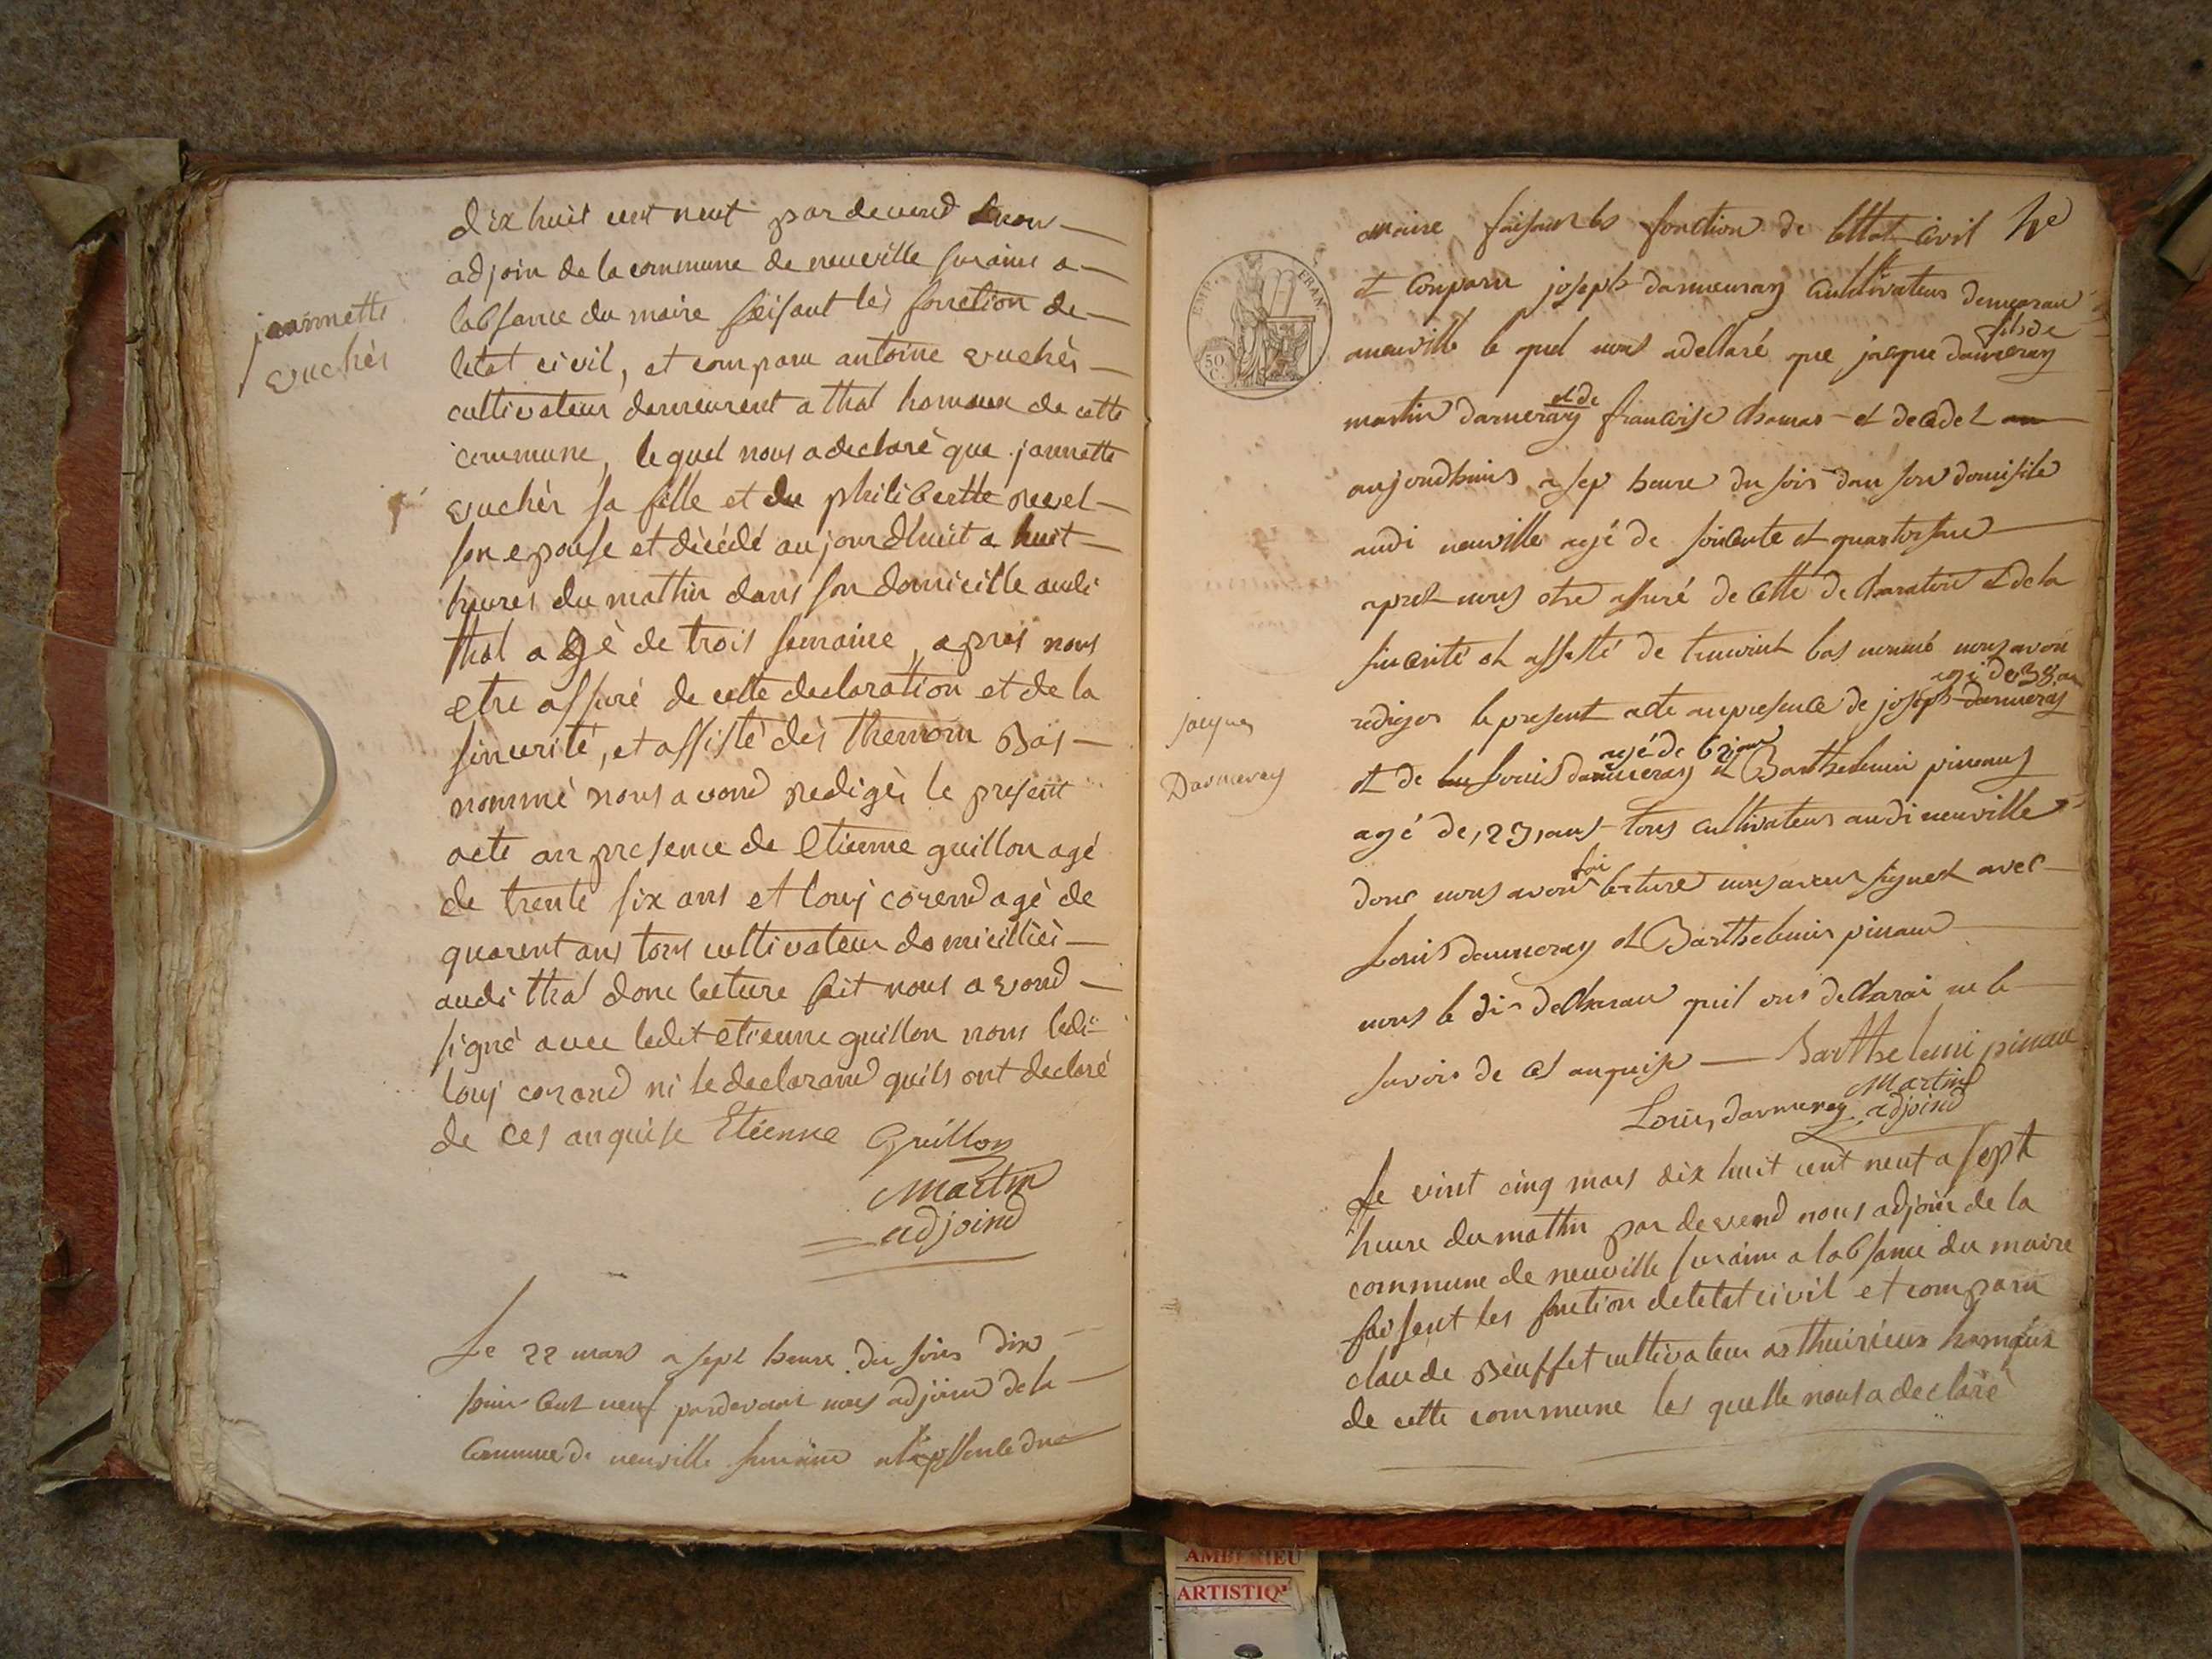 dix huit cent neuf par devend nou
adjoin de la commune de neuville surains a
labsance du maire faisant lès fonction de
letat civil, et comparu antoine vuchèr
cultivateur demeurent a thol homaux de cette
commune, le quel nous a declaré que jannette
vuchèr sa fille et du philibertte revel
son epouse et dècèdè aujourdhuit a huit
heures du mathin dans son domicille audi
thol a gè de trois semaine, a pres nous
etre assuré de cette declaration et de la
sincerité, et assistè dès themoin Bas
nommè nous avond redigèr le present
acte an presence de Etienne guillon agé
de trente six ans et louj corend agè de
quarent ans tous cultivateur domicilliès
audi thol donc lecture fait nous avond
signé avec ledit etienne guillon nons ledi
louj corand ni le declarand quils ont declaré
de ces anquise Etienne Guillon
Martin
adjoind
jeannette
vuchèr
Le 22 mars a sept heure du soir dix
huit Cent neuf pardevant nous adjoind de la
Commune de neuville surains a la
maire faisant les fonction de lettat Civil
et Conparu joseph darmeuray Cultivateur demeuran
aneuville le quel nous adellaré que jacque darmeray
fils de
martin darmeray et de francoise thomas et decedet
aujourdhuis a sep heure du soir dan son domisile
audi neuville agé de soixante et quatorse
apret nous etre assuré de Cette declaration et de la
sincerité et assisté de temoint bas nommé nous avon
rediger le present acte anpresence de joseph darmeray
agé de 38 an
et de Louis darmeray agé de et Barthelemis pinaud
agé de, 23, ans tous cultivateur audi neuville
donc nous avons fai lecture nous avons signet avec
Louis darmeray et Barthelemis pinaud
nons le di declaran quil ons declarai ne le
savoir de Ces anquise Barthelemi pinau
Martin
Louis, darmeray adjoind
jacques
Darmeray
EMP. FRAN.
50 C.
Le vint cinq mars dix huit cent neuf a sept
heure du mathin par devend nous adjoin de la
commune de neuville surains a labsance du maire
faisent les fonction de letat civil et comparu
claude Beuffet cultivateur
de cette commune les quelle nous a declaré
AMBERIEU
ARTISTIQ